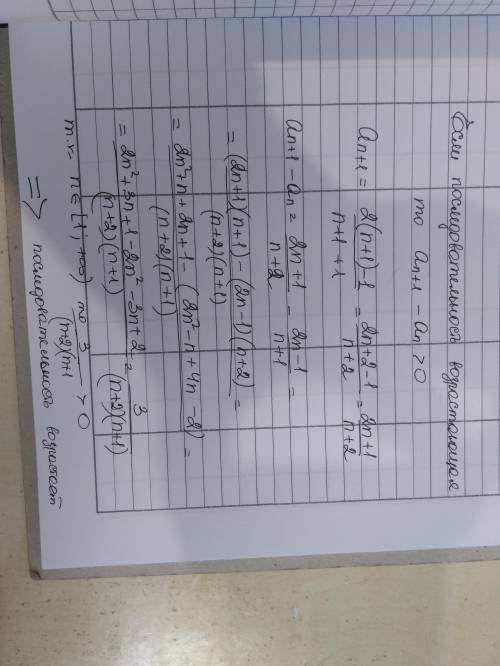 Если последовательность возрастающая
то an+1 - an > 0
an+1 = 2(n+1)-1 / n+1+1 = 2n+2-1 / n+2 = 2n+1 / n+2
an+1 - an = 2n+1 / n+2 - 2n-1 / n+1 =
= (2n+1)(n+1) - (2n-1)(n+2) / (n+2)(n+1) =
= 2n²+n+2n+1 - (2n²-n+4n-2) / (n+2)(n+1) =
= 2n²+3n+1-2n²-3n+2 / (n+2)(n+1) = 3 / (n+2)(n+1)
т.к n∈[1;+∞) то 3 / (n+2)(n+1 > 0
=> последовательность возрастает